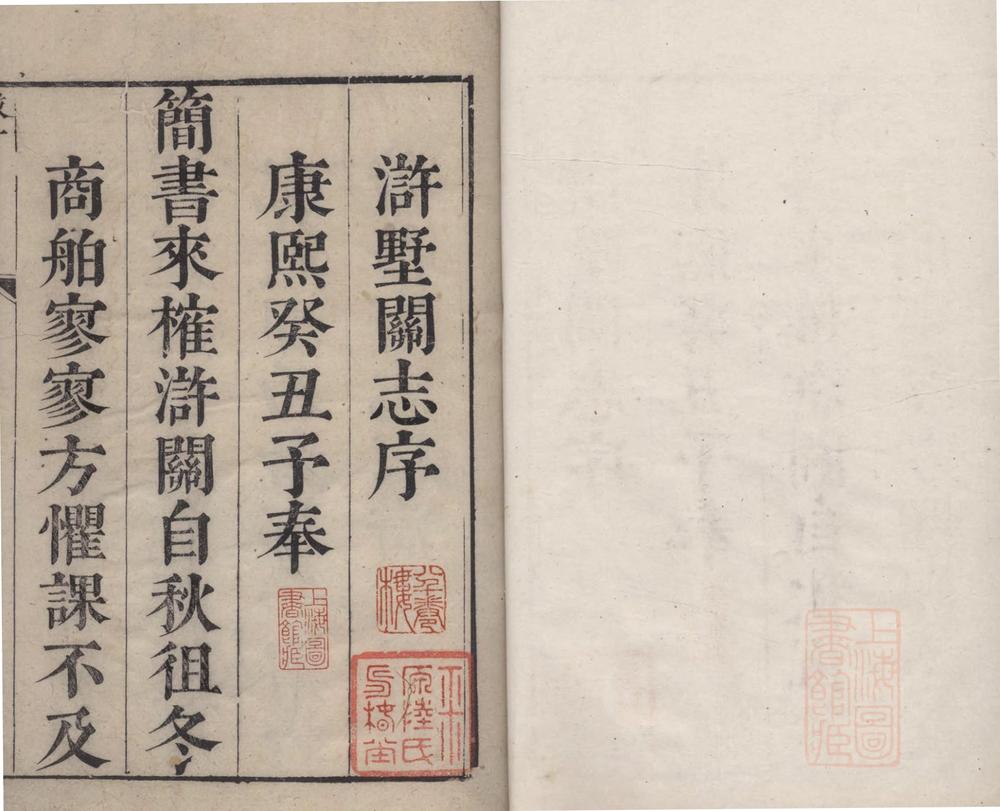 滸墅關志序
康熙癸丑予奉
簡書來榷滸關自秋徂冬
商舶寥寥方懼課不及
上海圖書館藏
上海圖書館藏